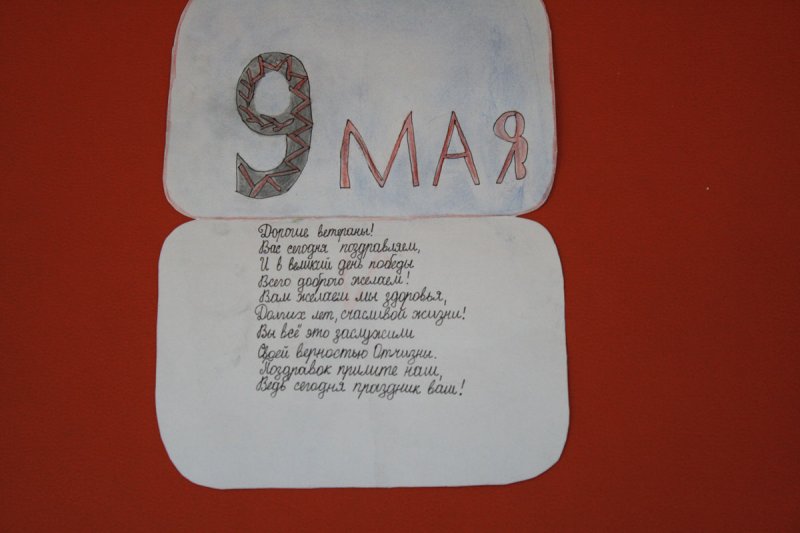 9 МАЯ
Дорогие ветераны!
Вас сегодня поздравляем,
И в великий день победы
Всего доброго желаем!
Вам желаем мы здоровья,
Долгих лет, счасливой жизни!
Вы всё это заслужили
Своей верностью Отчизни.
Поздравок примите наш,
Ведь сегодня праздник ваш!